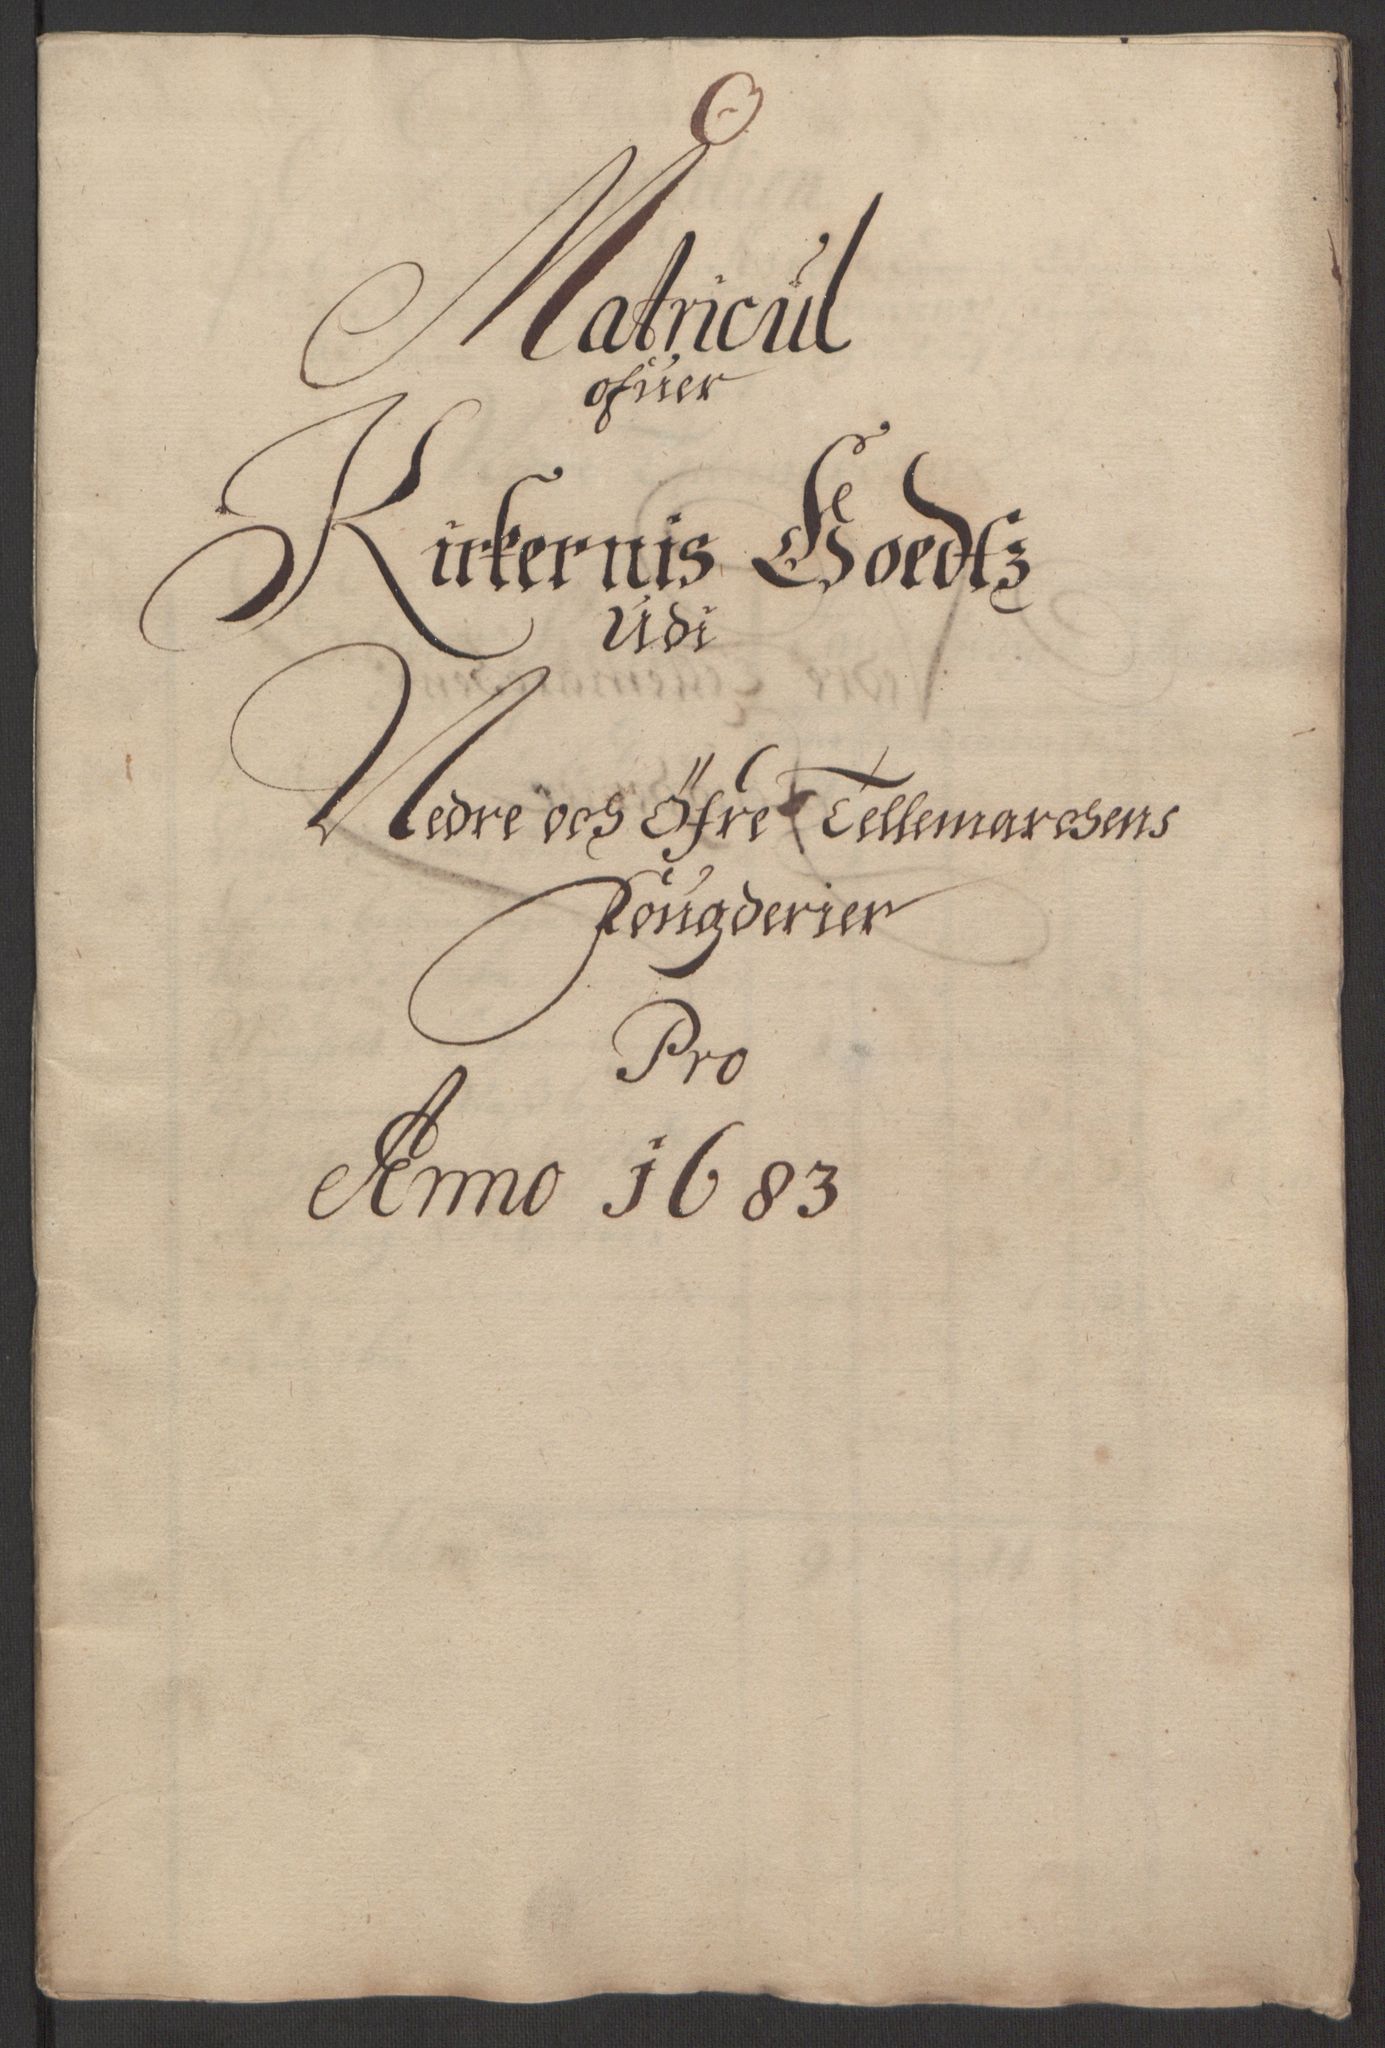 Matricul
ofuer
Kirkernis Goedtz
Udi
Nedre och Öfre Tellemarchens
Fougderier
Pro
Anno 1683